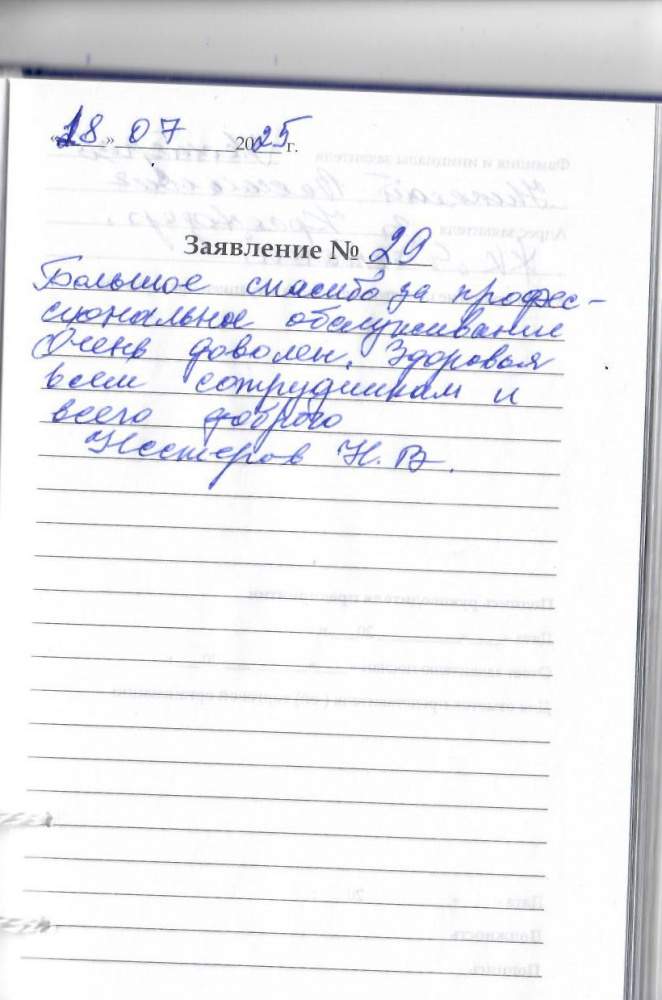 «18» 07 2025 г.
Заявление № 29
Большое спасибо за профес-
сиональное обслуживание
Очень доволен. Здоровья
всем сотрудникам и
всего доброго
Нестеров Н.В.